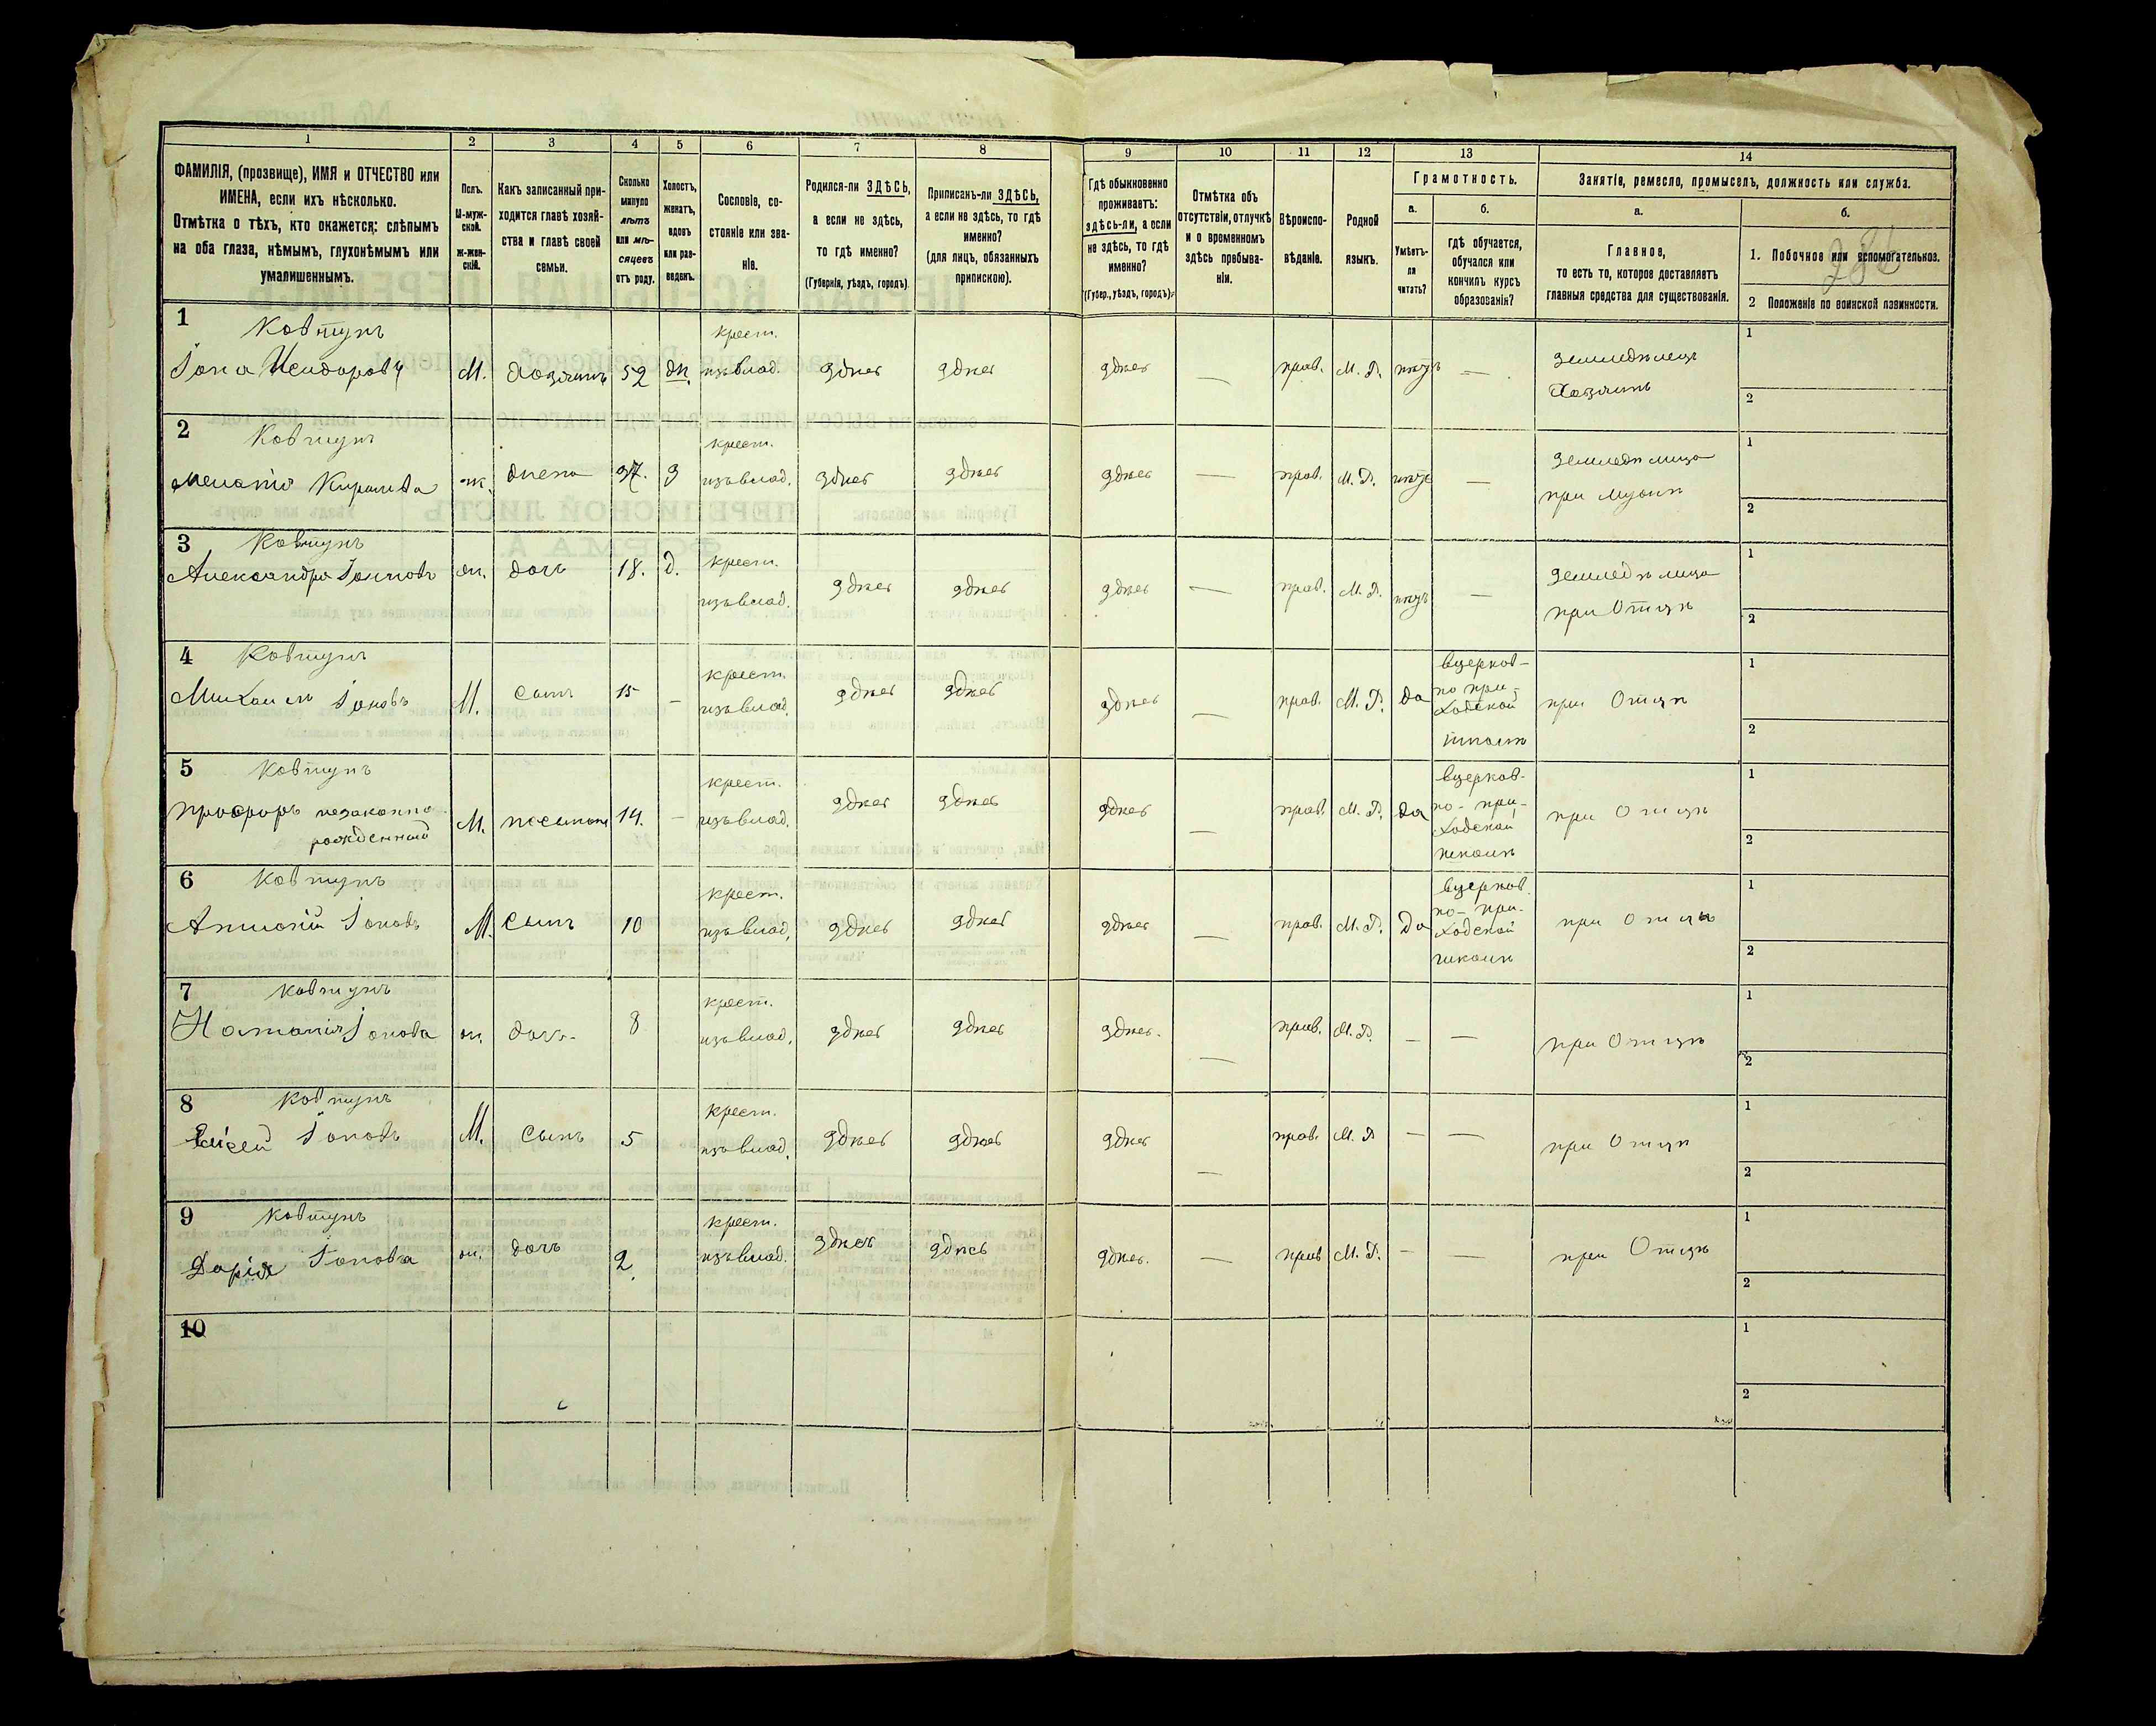 1 2 3 4 5 6 7 8 9 10 11 12 13 14
ФАМИЛІЯ, (прозвище), ИМЯ и ОТЧЕСТВО или
ИМЕНА, если ихъ нѣсколько.
Отмѣтка о тѣхъ, кто окажется: слѣпымъ
на оба глаза, нѣмымъ, глухонѣмымъ или
умалишеннымъ.
Полъ.
М-муж-
ской.
Ж-жен-
скій.
Какъ записанный при-
ходится главѣ хозяй-
ства и главѣ своей
семьи.
Сколько
минуло
лѣтъ
или мѣ-
сяцевъ
отъ роду.
Холостъ,
женатъ,
вдовъ
или раз-
веденъ.
Сословіе, со-
стояніе или зва-
ніе.
Родился-ли ЗДѢСЬ,
а если не здѣсь,
то гдѣ именно?
(Губернія, уѣздъ, городъ).
Приписанъ-ли ЗДѢСЬ,
а если не здѣсь, то гдѣ
именно?
(для лицъ, обязанныхъ
припискою).
Гдѣ обыкновенно
проживаетъ:
здѣсь-ли, а если
не здѣсь, то гдѣ
именно?
(Губер., уѣздъ, городъ).
Отмѣтка объ
отсутствіи, отлучкѣ
и о временномъ
здѣсь пребыва-
ніи.
Вѣроиспо-
вѣданіе.
Родной
языкъ.
Грамотность.
а.
Умѣетъ-
ли
читать?
б.
гдѣ обучается,
обучался или
кончилъ курсъ
образованія?
Занятіе, ремесло, промыселъ, должность или служба.
а.
Главное,
то есть то, которое доставляетъ
главныя средства для существованія.
б.
1. Побочное или вспомогательное.
2 Положеніе по воинской повинности.
286
1 Ковтунъ
Іона Исидоровъ М. Хозяинъ 52 крест.
изъ влад. здѣсь здѣсь здѣсь — прав. М. Р. нѣтъ — Земледѣлецъ
Хозяинъ
1
2
2 Ковтунъ
Кирилова ж. жена 37. з крест.
изъ влад. здѣсь здѣсь здѣсь — прав. М. Р. нѣтъ — Земледѣлица
при мужѣ
1
2
3 Ковтунъ
Александра Іонова ж. дочь 18. д. крест.
изъ влад. здѣсь здѣсь здѣсь — прав. М. Р. нѣтъ — Земледѣлица
при Отцѣ
1
2
4 Ковтунъ
Михаилъ Іоновъ М. сынъ 15 — крест.
изъ влад. здѣсь здѣсь здѣсь — прав. М. Р. да вцерков-
но при-
ходской
школѣ
при Отцѣ
1
2
5 Ковтунъ
Прохоръ незаконно
рожденный М. 14. — крест.
изъ влад. здѣсь здѣсь здѣсь — прав. М. Р. да вцерков-
но-при-
ходской
школѣ
при Отцѣ
1
2
6 Ковтунъ
Анатолій Іоновъ М. сынъ 10 крест.
изъ влад. здѣсь здѣсь здѣсь — прав. М. Р. да вцерков.
но-при-
ходской
школѣ
при Отцѣ
1
2
7 Ковтунъ
Наталія Іонова ж. дочь 8 крест.
изъ влад. здѣсь здѣсь здѣсь. — прав. М. Р. — — при Отцѣ
1
2
8 Ковтунъ
Елисей Іоновъ М. сынъ 5 крест.
изъ влад. здѣсь здѣсь здѣсь — прав. М. Р — — при Отцѣ
1
2
9 Ковтунъ
Дарія Іонова ж. дочь 2. крест.
изъ влад. здѣсь здѣсь здѣсь. — прав М. Р. — — при Отцѣ
1
2
10
1
2